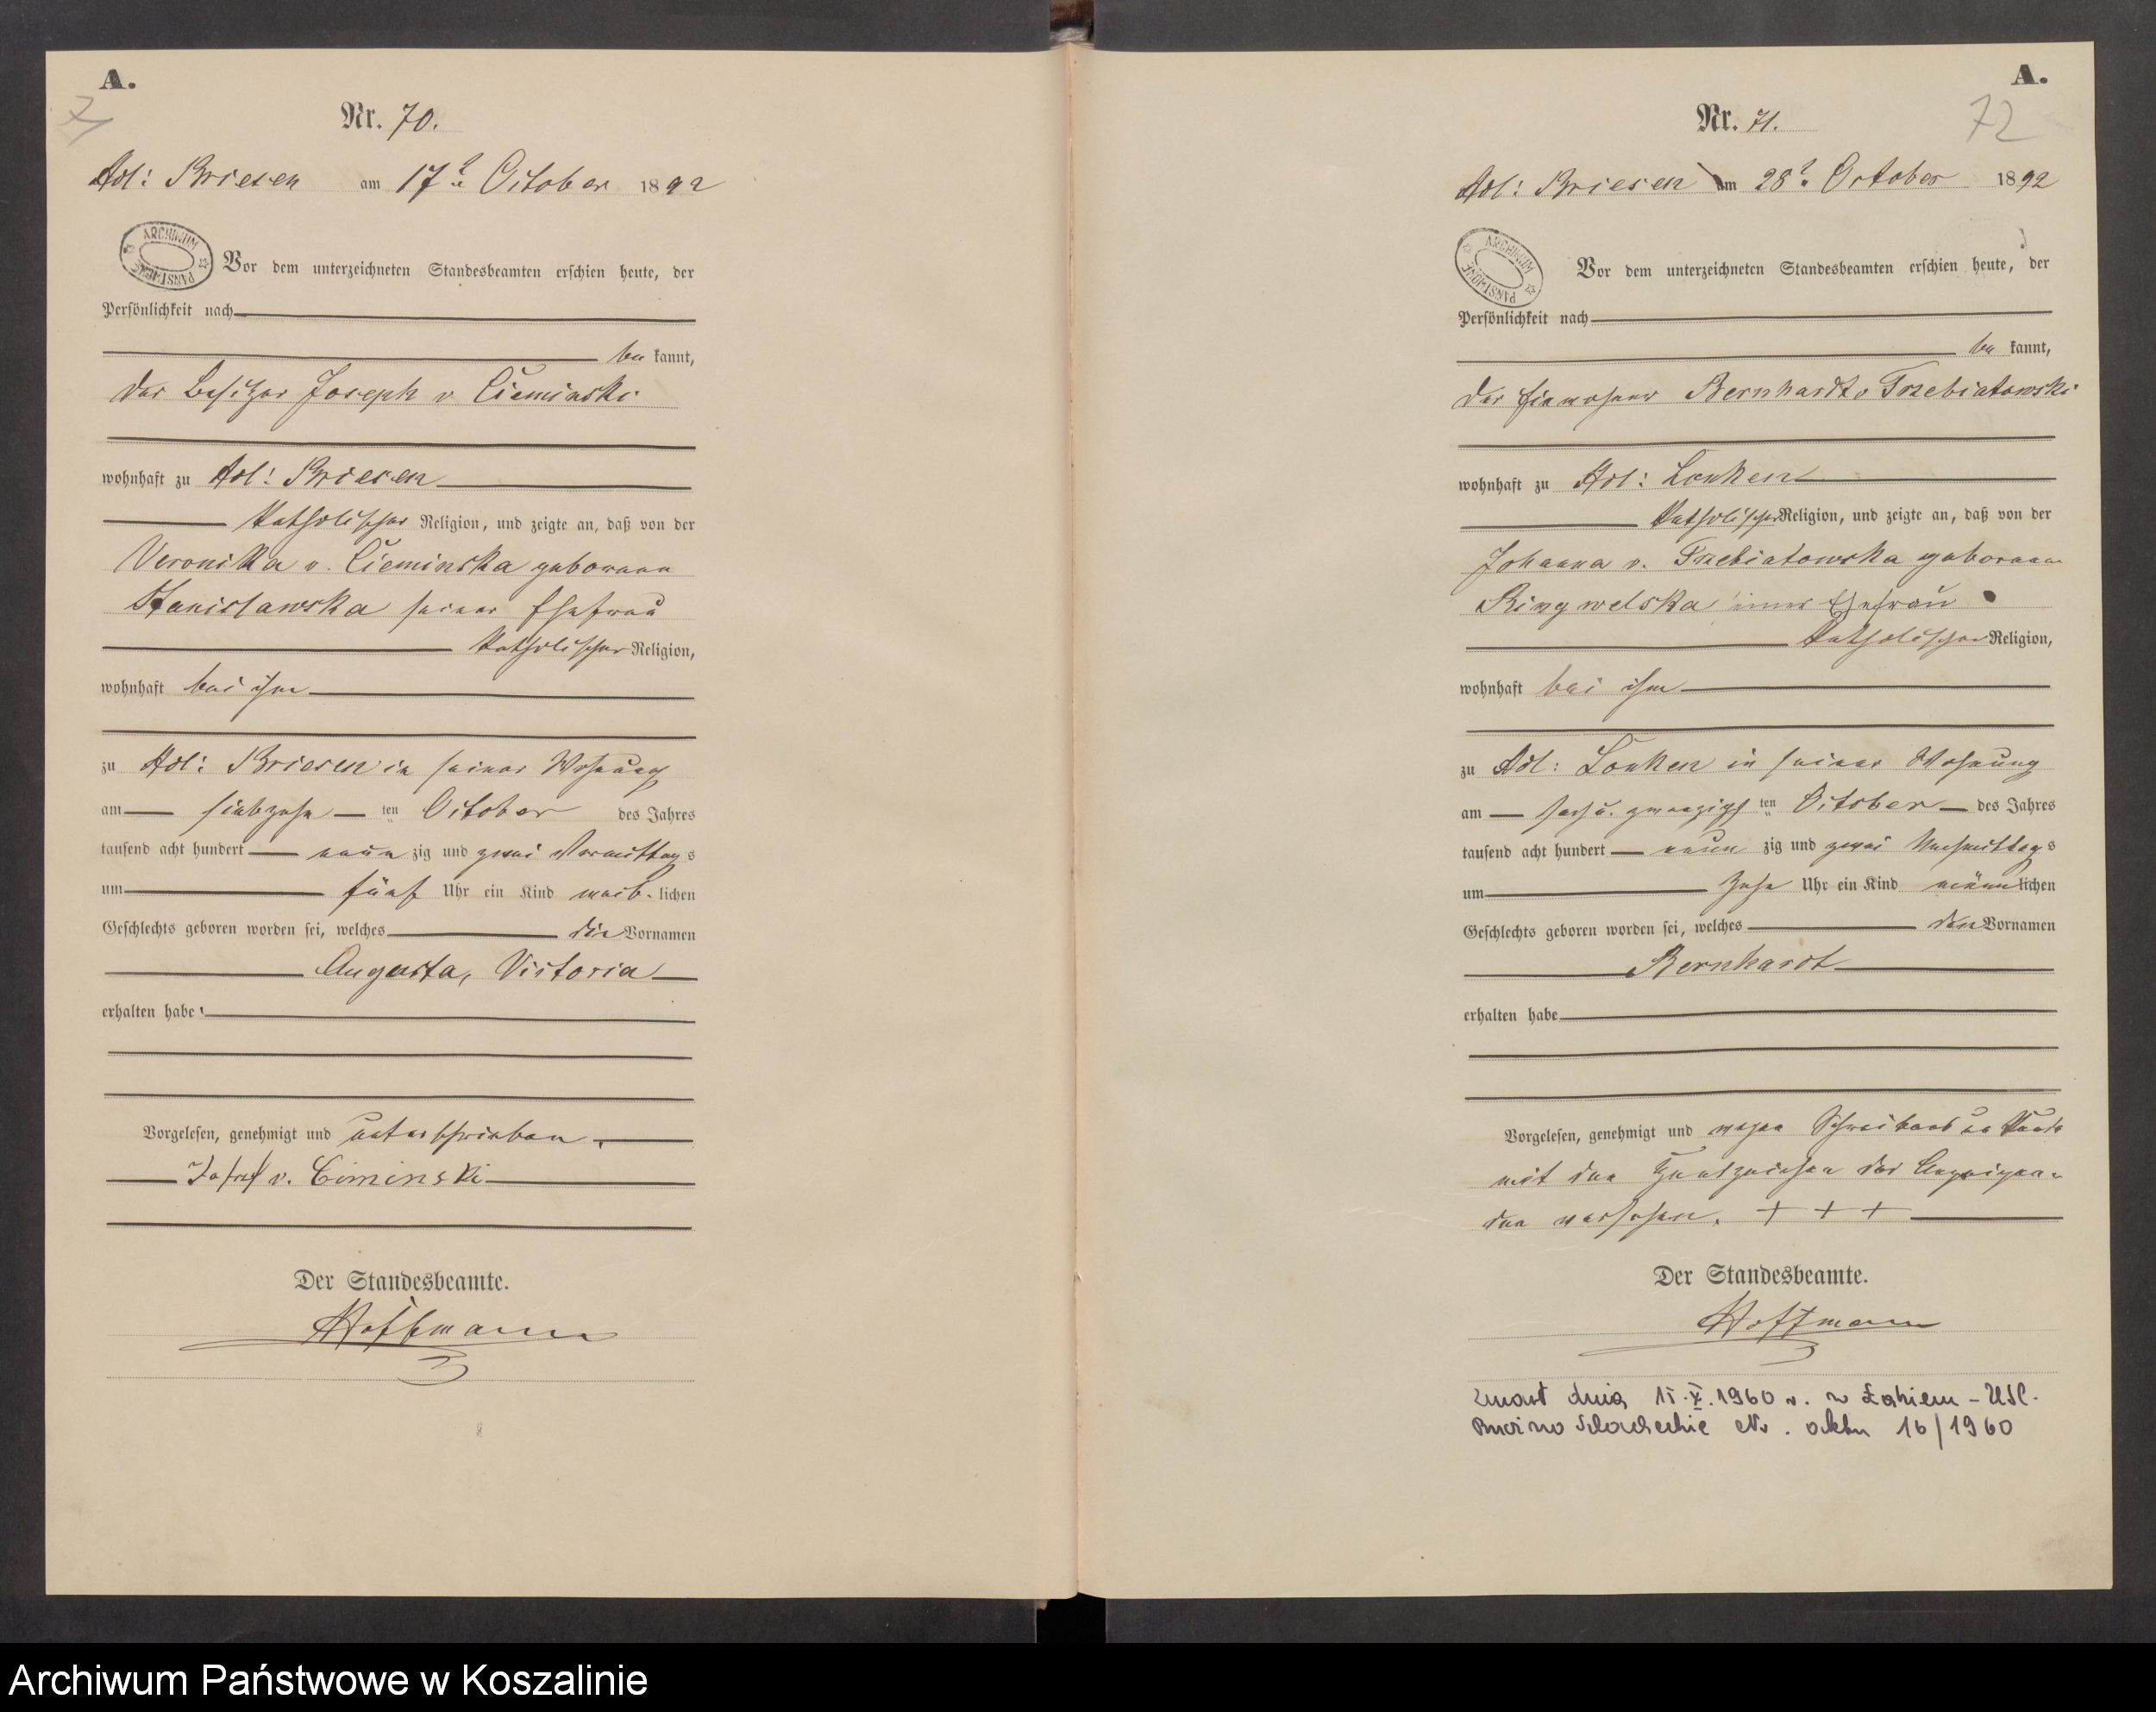 A.
71
Nr. 70.
Adl: Briesen am 17t October 1892
ARCHIWUM PAŃSTWOWE
Vor dem unterzeichneten Standesbeamten erschien heute, der
Persönlichkeit nach
be kannt,
der Besitzer Joseph v Cieminski
wohnhaft zu Adl: Briesen
katholischer Religion, und zeigte an, daß von der
Veronikka v. Cieminska geborene
Stanislawska seiner Ehefrau
katholischer Religion,
wohnhaft bei ihm
zu Adl: Briesen in seiner Wohnung
am siebzehn ten October des Jahres
tausend acht hundert neun zig und zwei Vormittags
um fünf Uhr ein Kind weib- lichen
Geschlechts geboren worden sei, welches die Vornamen
Augusta, Victoria
erhalten habe
Vorgelesen, genehmigt und unterschrieben
Josef v. Ciminski
Der Standesbeamte.
Hoffmann
A.
72
Nr. 71.
Adl: Briesen am 28t October 1892
ARCHIWUM PAŃSTWOWE
Vor dem unterzeichneten Standesbeamten erschien heute, der
Persönlichkeit nach
be kannt,
der Einwohner Bernhardt v Trzebiatowski
wohnhaft zu Adl: Lonken
katholischer Religion, und zeigte an, daß von der
Johanna v. Trzebiatowska geborene
Ringwelska seiner Ehefrau
katholischer Religion,
wohnhaft bei ihm
zu Adl: Lonken in seiner Wohnung
am sechs u. zwanzigs ten October des Jahres
tausend acht hundert neun zig und zwei Nachmittags
um zehn Uhr ein Kind männ lichen
Geschlechts geboren worden sei, welches den Vornamen
Bernhardt
erhalten habe
Vorgelesen, genehmigt und wegen Schreibens
mit den Handzeichen des Anzeigen-
den versehen. + + +
Der Standesbeamte.
Hoffmann
Zmarł dnia 1960 r. w Łąkiem - USC.
Brzeźno Szlacheckie Nr. aktu 16/1960
Archiwum Państwowe w Koszalinie